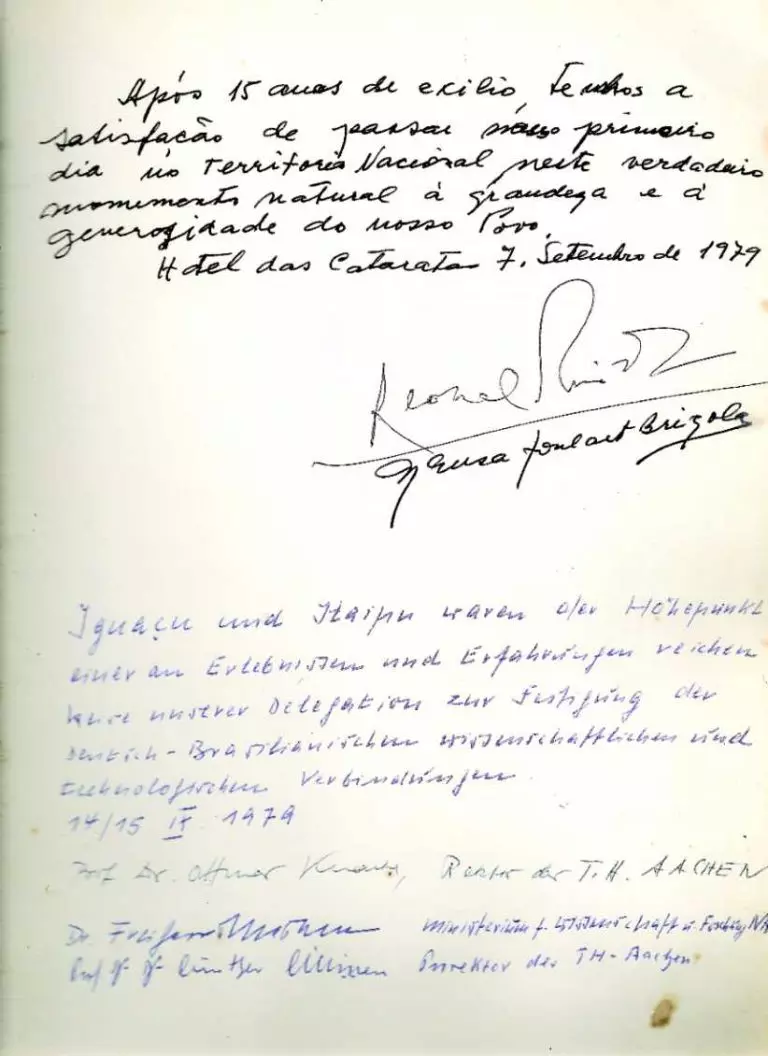 Após 15 anos de exilio, temos a
satisfação de passar nosso primeiro
dia no Territorio Nacional neste verdadeiro
monumento natural à grandeza e à
generosidade do nosso Povo.
Hotel das Cataratas 7. Setembro de 1979
Leonel
Neusa Goulart Brizola
Iguaçu und Itaipu waren der Höhepunkt
einer an Erlebnissen und Erfahrungen reichen
Reise unserer Delegation zur Festigung der
Deutsch-Brasilianischen wissenschaftlichen und
technologischen Verbindungen
14/15 IX 1979
Prof Dr. Ottmar Rektor der T.H. AACHEN
Dr. Ministerium f. Wissenschaft u. Forschung
Prof Dr Günther Prorektor der TH-Aachen